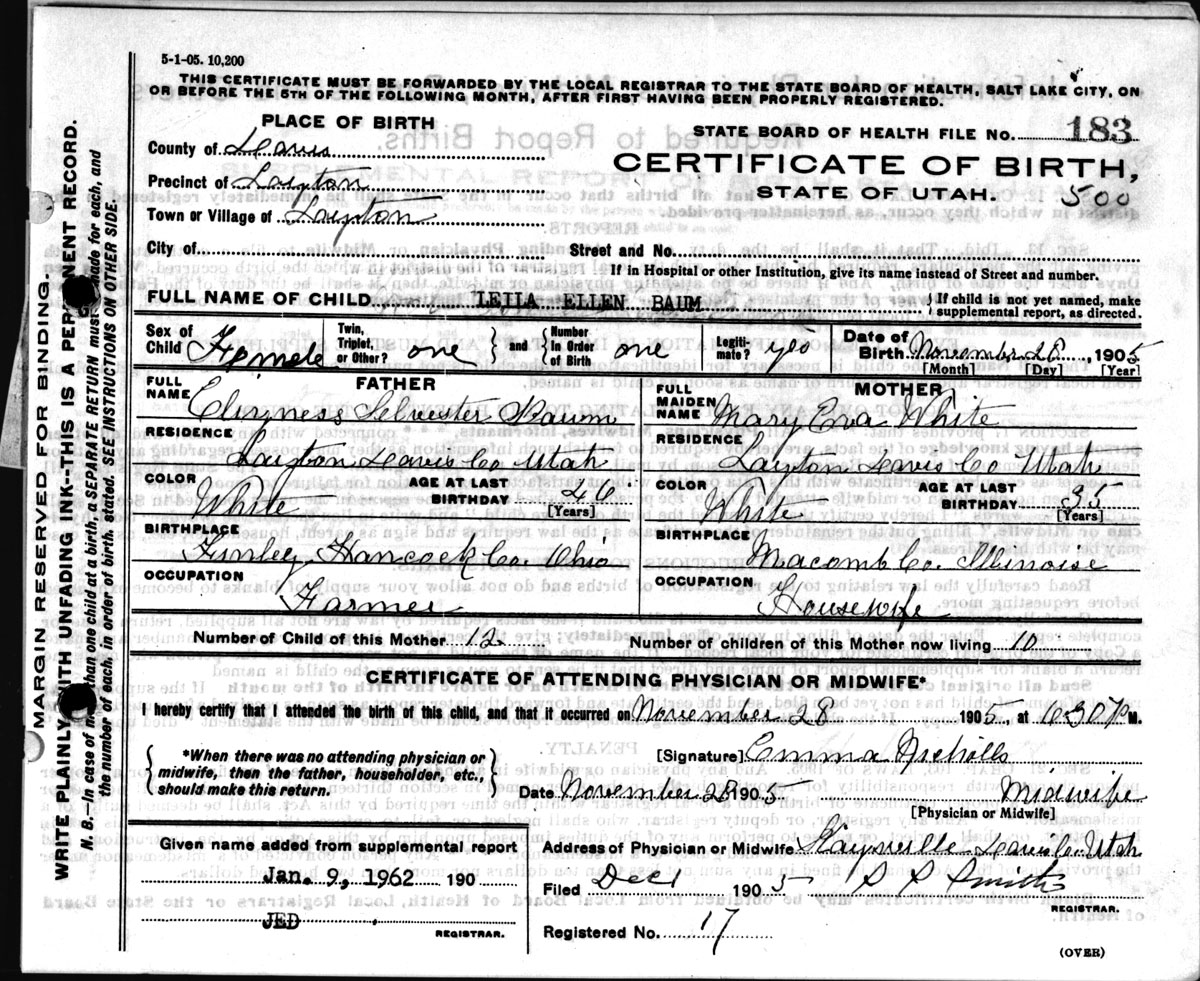 5-1-05. 10,200
THIS CERTIFICATE MUST BE FORWARDED BY THE LOCAL REGISTRAR TO THE STATE BOARD OF HEALTH, SALT LAKE CITY, ON
OR BEFORE THE 5TH OF THE FOLLOWING MONTH, AFTER FIRST HAVING BEEN PROPERLY REGISTERED.
PLACE OF BIRTH
County of Davis
Precinct of Layton
Town or Village of Layton
City of
STATE BOARD OF HEALTH FILE NO. 183
CERTIFICATE OF BIRTH,
STATE OF UTAH. 500
Street and No.
If in Hospital or other Institution, give its name instead of Street and number.
FULL NAME OF CHILD LEILA ELLEN BAUM { If child is not yet named, make supplemental report, as directed.
Sex of Child Female Twin, Triplet, or Other? one } and { Number in Order of Birth one Legiti-mate? yes Date of Birth November 28, 1905
[Month] [Day] [Year]
FATHER
FULL NAME Sylvester Baum
RESIDENCE
Layton Davis Co Utah
COLOR White AGE AT LAST BIRTHDAY 46 [Years]
BIRTHPLACE
Finley Hancock Co. Ohio
OCCUPATION
Farmer
MOTHER
FULL MAIDEN NAME Mary Eva White
RESIDENCE
Layton Davis Co Utah
COLOR White AGE AT LAST BIRTHDAY 35 [Years]
BIRTHPLACE
Macomb Co. Illinoise
OCCUPATION
Housewife
Number of Child of this Mother 12 Number of children of this Mother now living 10
CERTIFICATE OF ATTENDING PHYSICIAN OR MIDWIFE*
I hereby certify that I attended the birth of this child, and that it occurred on November 28 1905, at 630 P M.
{ *When there was no attending physician or
midwife, then the father, householder, etc.,
should make this return. }
[Signature] Emma Nicholls
Date November 28 1905 Midwife
[Physician or Midwife]
Given name added from supplemental report
Jan. 9, 1962 190
JED
REGISTRAR.
Address of Physician or Midwife Kaysville Davis Co Utah
Filed Dec 1 1905 Smith
REGISTRAR.
Registered No. 17
(OVER)
MARGIN RESERVED FOR BINDING.
WRITE PLAINLY WITH UNFADING INK--THIS IS A PERMANENT RECORD.
N. B.--In case of more than one child at a birth, a SEPARATE RETURN must be made for each, and
the number of each, in order of birth, stated. SEE INSTRUCTIONS ON OTHER SIDE.